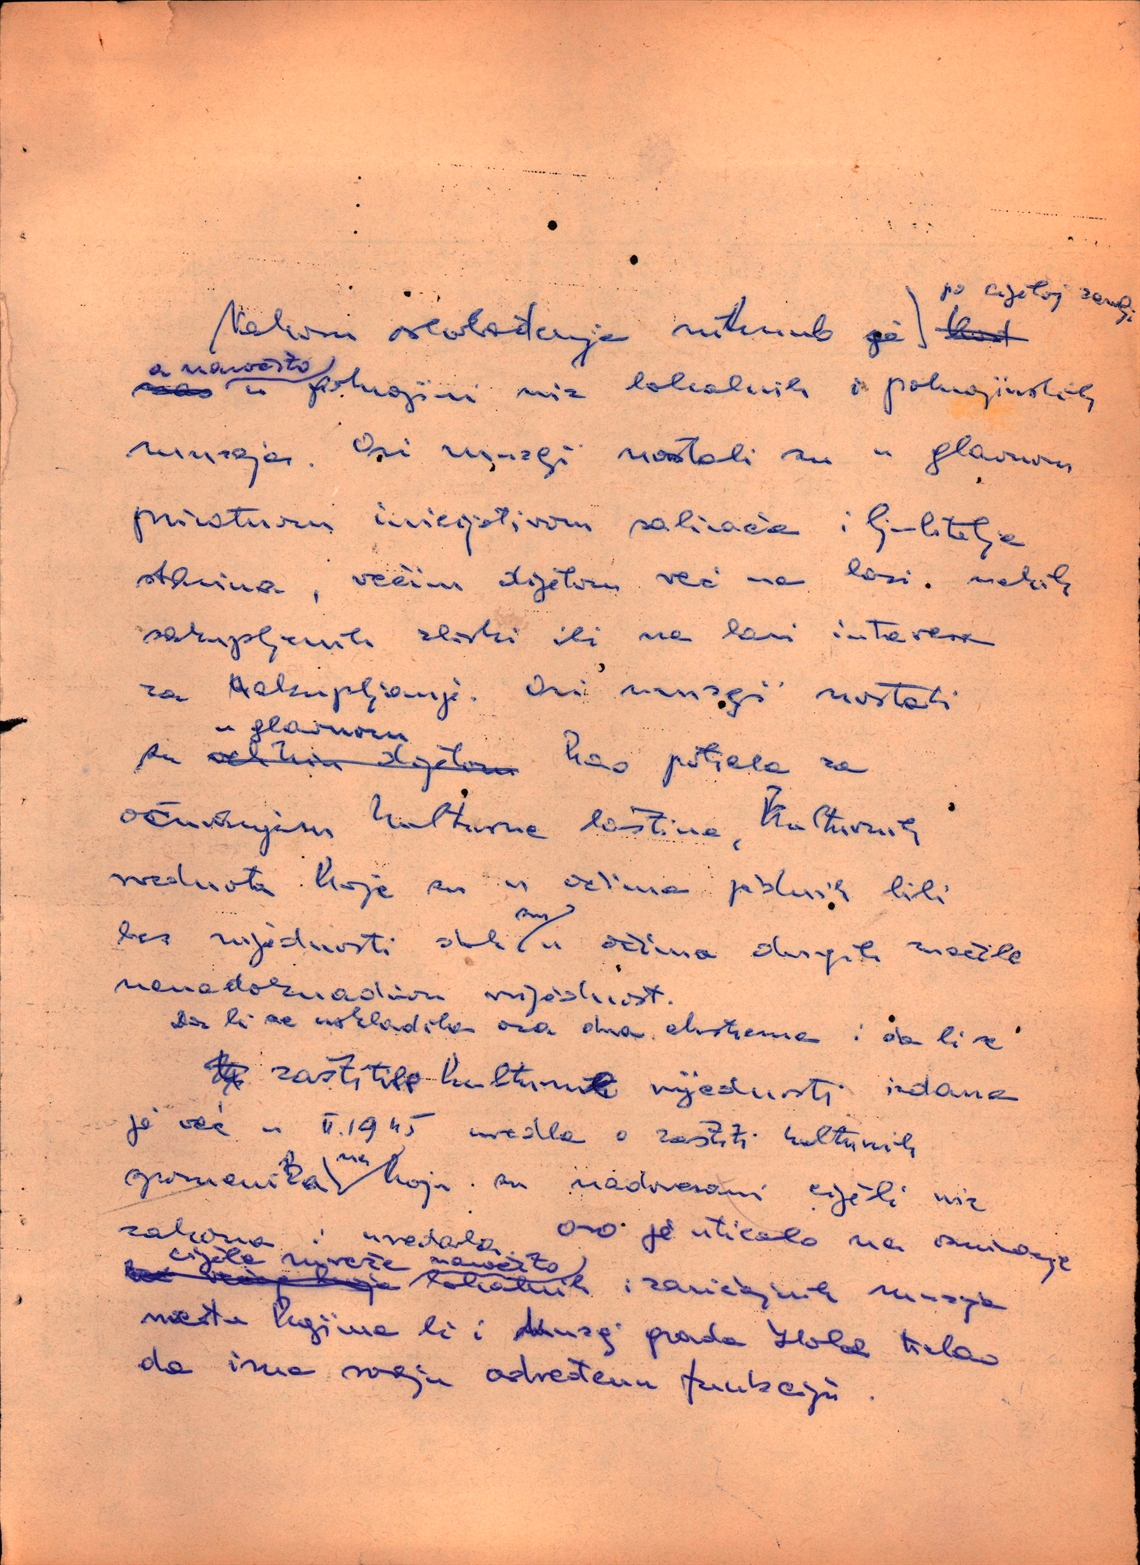 po cijeloj zemlji
Nakon oslobođenja niknulo je
a naročito
u pokrajini niz lokalnih i pokrajinskih
muzeja. Ovi muzeji nastali su u glavnom
privatnom inicijativom salivača i ljubitelja
starina, većim dijelom već na bazi nekih
sakupljenih zbirki ili na bazi interesa
za sakupljanje. Ovi muzeji nastali
u glavnom
su velikim dijelom kao potreba za
očuvanjem kulturne baštine, kulturnih
vrednota koje su u očima jednih bili
su
bez vrijednosti dok u očima drugih značile
nenadoknadivu vrijednost.
Da li se uskladila ova dva ekstrema i da li se
zaštitile kulturne vrijednosti izdana
je već u II.1945 uredba o zaštiti kulturnih
spomenika na koju su nadovezani cijeli niz
zakona i uredaba. Ovo je uticalo na osnivanje
cijele mreže naročito
lokalnih i zavičajnih muzeja
među kojima bi i Muzej grada Iloka trebao
da ima svoju određenu funkciju.